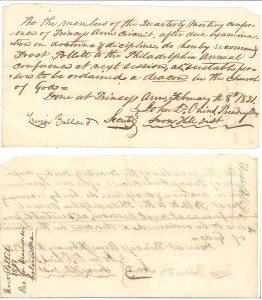 We the members of the Quarterly Meeting confer-
ence of Princess Anne Circuit, after due examina-
tion in doctrine & discipline, do hereby recommend
Frost Pollett to the Philadelphia Annual
Conference at next session, as suitable per-
son to be ordained a deacon in the Church
of God
Done at Princess Anne February the 8th 1831.
Presiding Elder
Lewin Ballard Secretary Snow Hill Dist
Frost Pollett
1831
Rec for Deacon
Colored Man